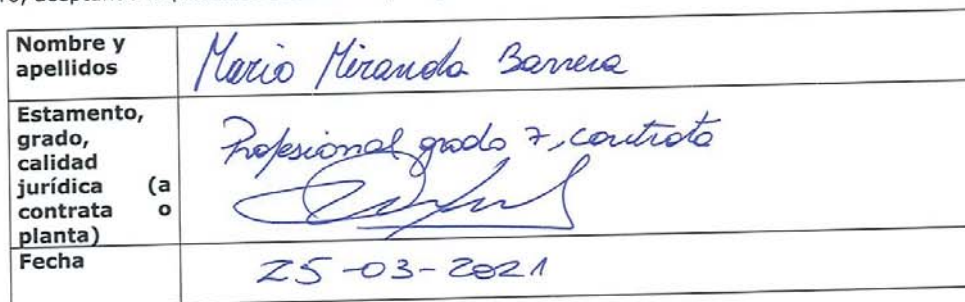 Nombre y
apellidos
Mario Miranda Barrera
Estamento,
grado,
calidad
jurídica (a
contrata o
planta)
Profesional grado 7, contrata
Fecha
25-03-2021